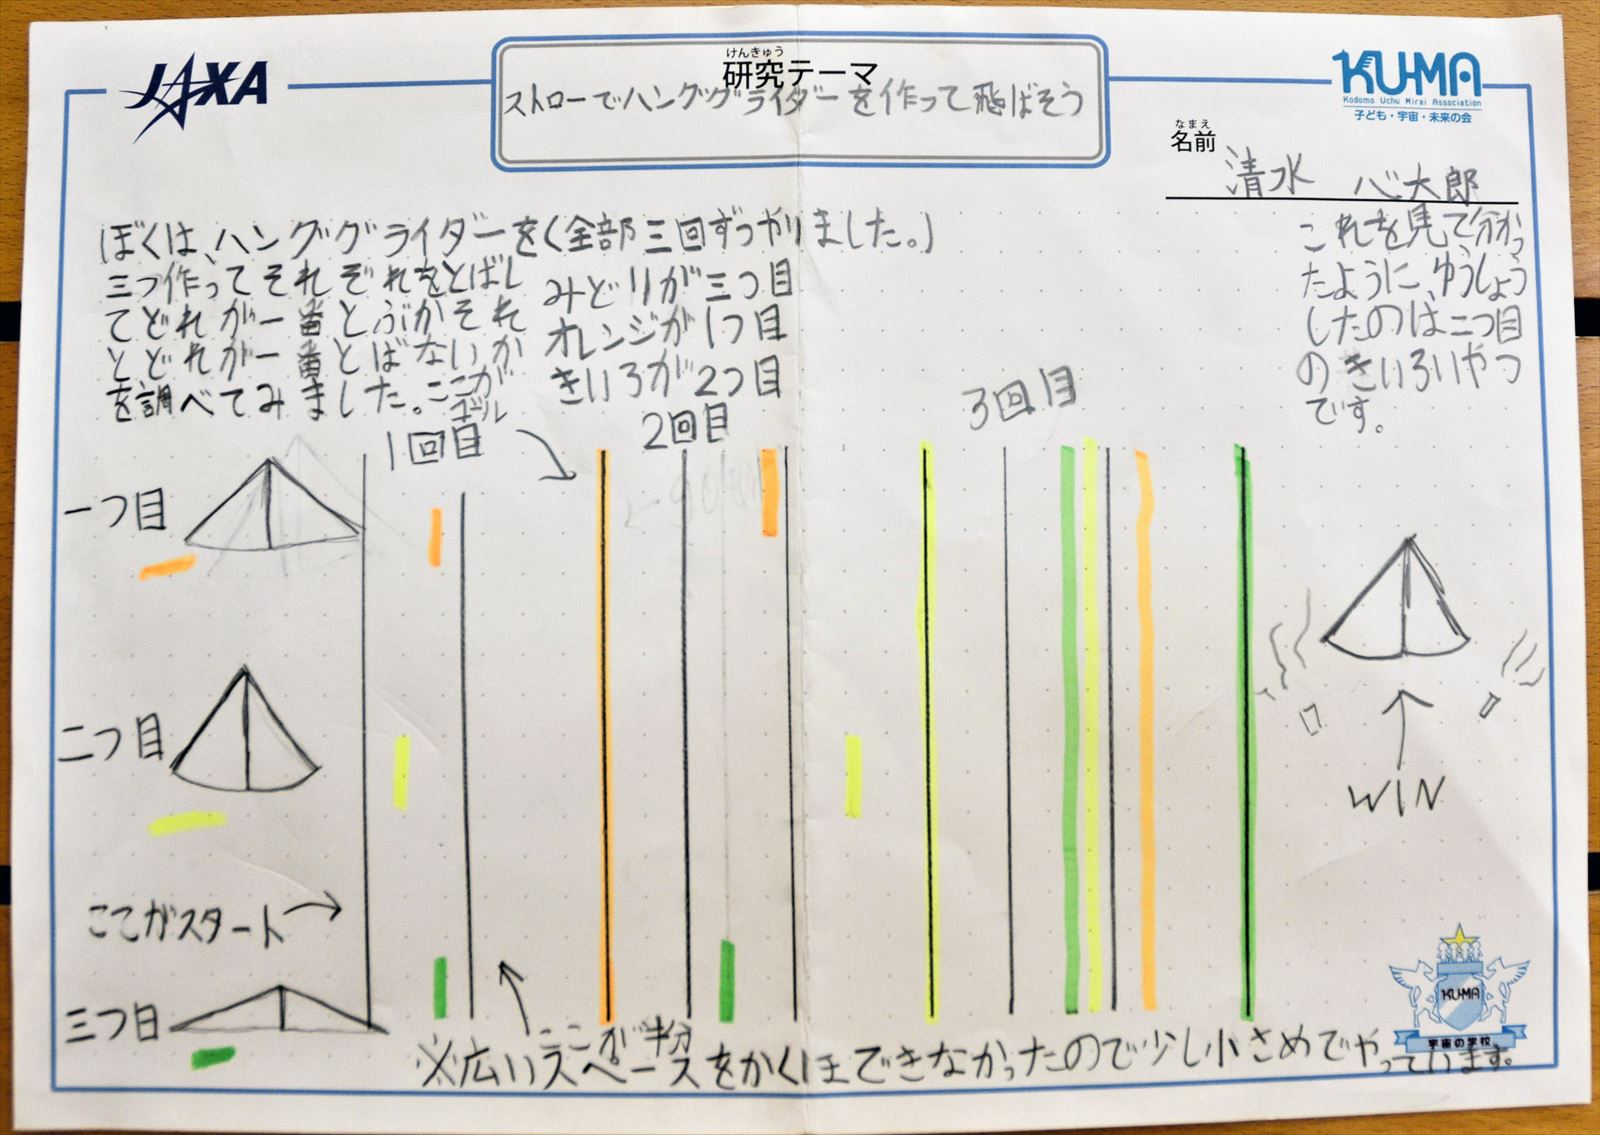 JAXA
けんきゅう
研究テーマ
ストローでハンググライダーを作って飛ばそう
KU-MA
Kodomo Uchu Mirai Association
子ども・宇宙・未来の会
なまえ
名前
清水 心太郎
ぼくは、ハンググライダーを(全部三回ずつやりました。)
三つ作ってそれぞれをとばし
てどれが一番とぶかそれ
とどれが一番とばないか
を調べてみました。
みどりが三つ目
オレンジが1つ目
きいろが2つ目
これを見て分かっ
たように、ゆうしょう
したのは、二つ目
のきいろいやつ
です。
ここが
ゴール
1回目
2回目
3回目
一つ目
二つ目
ここがスタート
三つ目
ここが半分
※広いスペースをかくほできなかったので少し小さめでやっています。
WIN
KU-MA
宇宙の学校